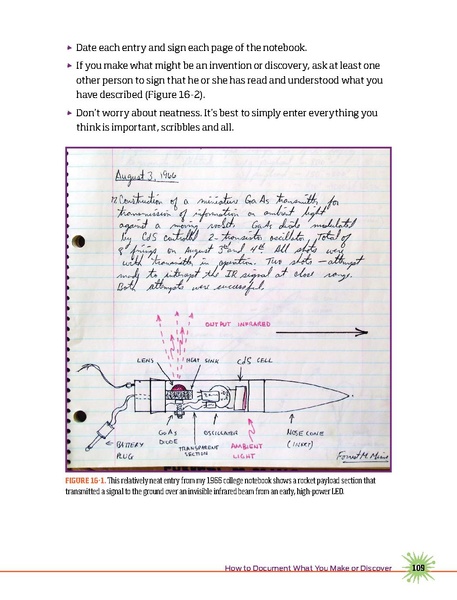 ▸ Date each entry and sign each page of the notebook.
▸ If you make what might be an invention or discovery, ask at least one
other person to sign that he or she has read and understood what you
have described (Figure 16-2).
▸ Don't worry about neatness. It's best to simply enter everything you
think is important, scribbles and all.
August 3, 1966
Construction of a miniature GaAs transmitter for
transmission of information on ambient light
against a moving rocket. GaAs diode modulated
by CdS controlled 2-transistor oscillator. Total of
8 firings on August 3rd and 4th. All shots were
with transmitter in operation. Two shots - attempt
made to intercept the IR signal at close range.
Both attempts were successful.
OUTPUT INFRARED
LENS
HEAT SINK
CdS CELL
GaAs
DIODE
TRANSPARENT
SECTION
OSCILLATOR
AMBIENT
LIGHT
NOSE CONE
(INERT)
BATTERY
PLUG
Forrest M. Mims
FIGURE 16-1. This relatively neat entry from my 1966 college notebook shows a rocket payload section that
transmitted a signal to the ground over an invisible infrared beam from an early, high-power LED.
How to Document What You Make or Discover
109